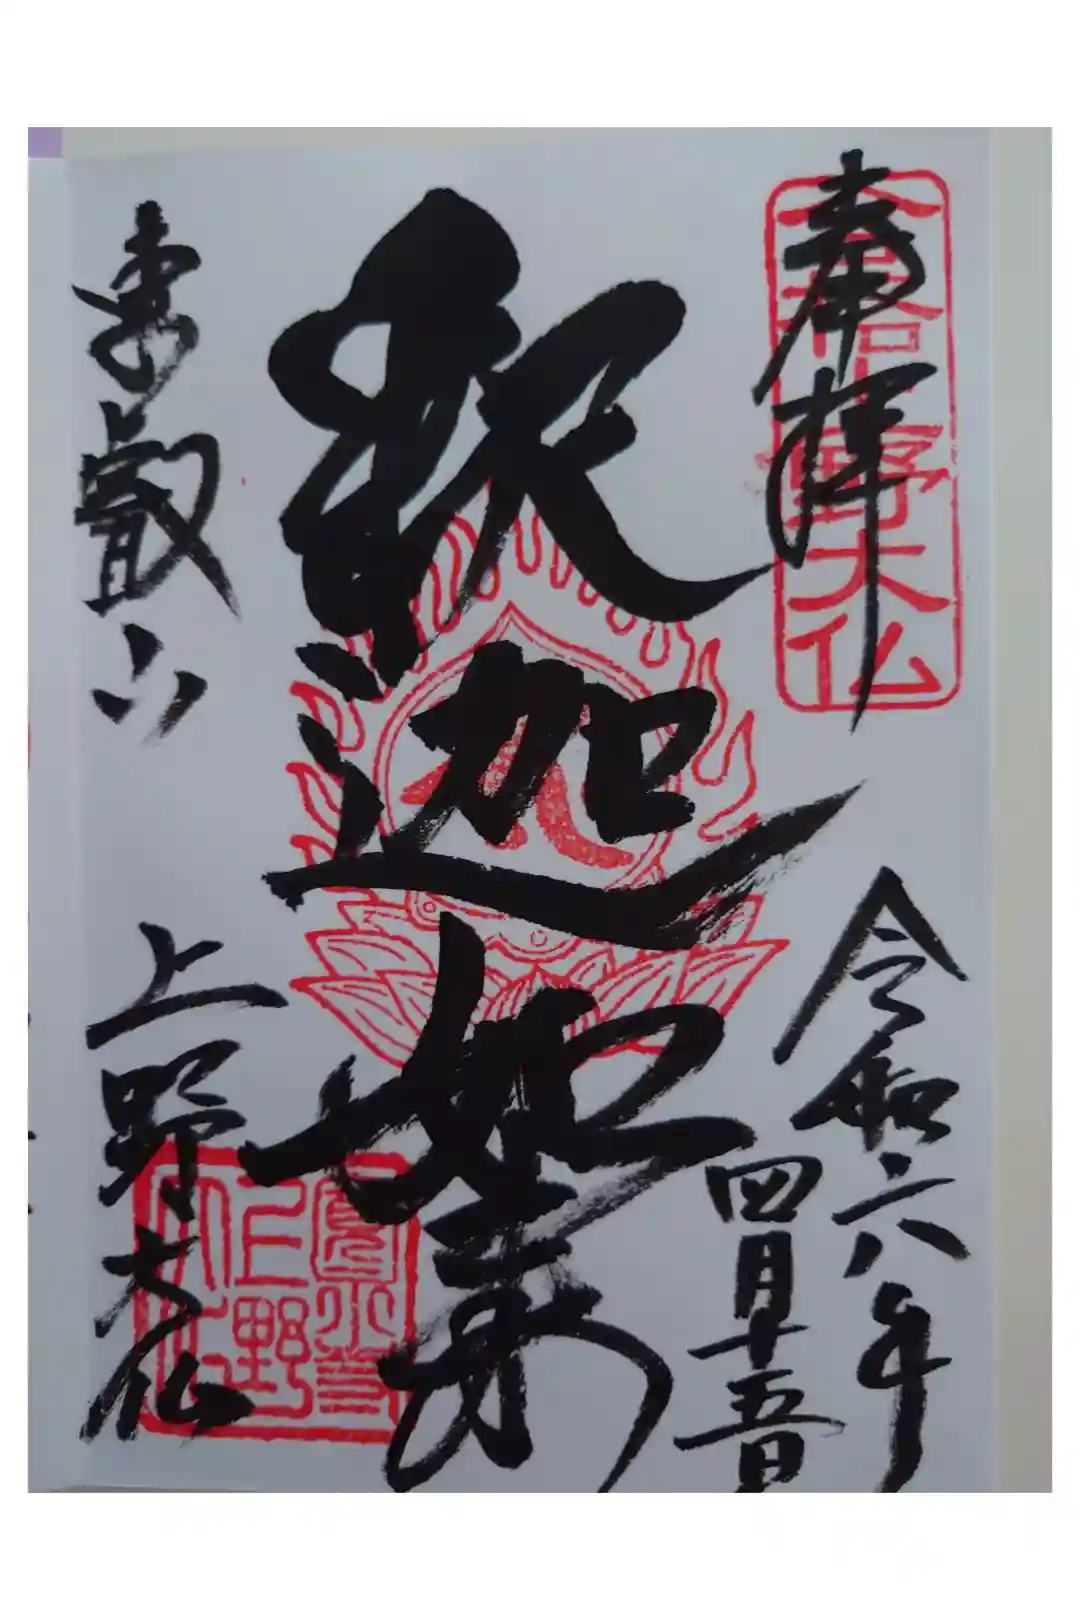 奉拝
合格野大仏
令和六年
四月十五日
釈迦如来
東叡山
上野大仏
上野